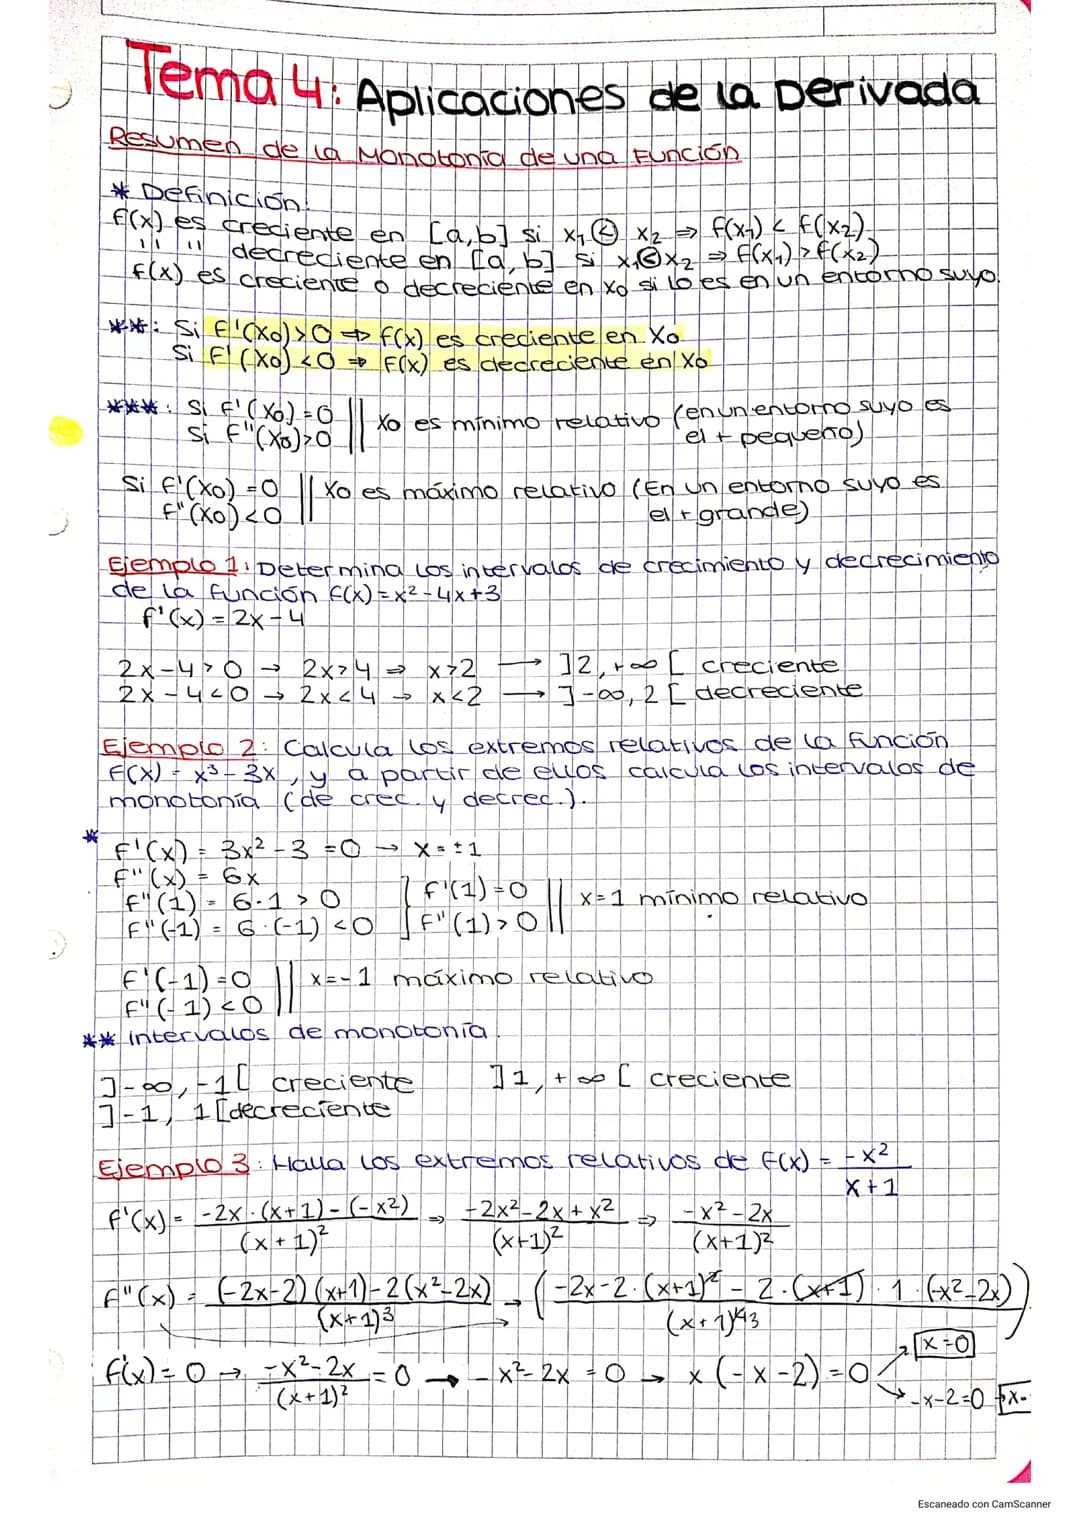 Tema 4: Aplicaciones de la Derivada
Resumen de la Monotonía de una Función
* Definición:
f(x) es creciente en [a,b] si x₁ < x₂ ⇒ f(x₁) < f(x₂).
" " decreciente en [a,b] si x₁ < x₂ ⇒ f(x₁) > f(x₂)
f(x) es creciente o decreciente en x₀ si lo es en un entorno suyo.
**: Si f'(x₀) > 0 ⇒ f(x) es creciente en x₀
Si f'(x₀) < 0 ⇒ f(x) es decreciente en x₀
***: Si f'(x₀) = 0 || x₀ es mínimo relativo (en un entorno suyo es
Si f''(x₀) > 0 || el + pequeño)
Si f'(x₀) = 0 || x₀ es máximo relativo (En un entorno suyo es
f''(x₀) < 0 || el + grande)
Ejemplo 1: Determina los intervalos de crecimiento y decrecimiento
de la función f(x) = x² - 4x + 3
f'(x) = 2x - 4
2x - 4 > 0 → 2x > 4 ⇒ x > 2 → ]2, +∞[ creciente
2x - 4 < 0 → 2x < 4 → x < 2 → ]-∞, 2[ decreciente
Ejemplo 2: Calcula los extremos relativos de la función
f(x) = x³ - 3x, y a partir de ellos calcula los intervalos de
monotonía (de crec. y decrec.).
*
f'(x) = 3x² - 3 = 0 → x = ±1
f''(x) = 6x
f''(1) = 6·1 > 0 ] f'(1) = 0 || x = 1 mínimo relativo
f''(-1) = 6·(-1) < 0 ] f''(1) > 0 ||
f'(-1) = 0 || x = -1 máximo relativo
f''(-1) < 0 ||
** intervalos de monotonía.
]-∞, -1[ creciente ]1, +∞[ creciente
]-1, 1[ decreciente
Ejemplo 3: Halla los extremos relativos de f(x) = -x²/x+1
f'(x) = -2x·(x+1) - (-x²)/(x+1)² ⇒ -2x² - 2x + x²/(x+1)² ⇒ -x² - 2x/(x+1)²
f''(x) = (-2x-2)(x+1) - 2(x²-2x)/(x+1)³ → (-2x-2·(x+1)² - 2·(x+1)·1·(-x²-2x)/(x+1)⁴³)
f'(x) = 0 → -x²-2x/(x+1)² = 0 → -x² - 2x = 0 → x(-x-2) = 0 x=0
-x-2=0 x=-
Escaneado con CamScanner